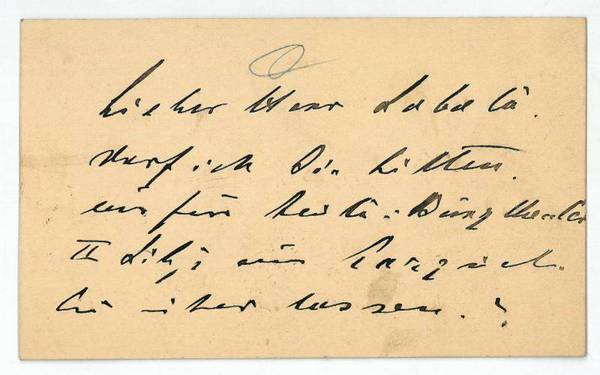 Lieber Herr
darf ich Sie bitten
mir für heute Burgtheater
II Sitze im Parquet
zu überlassen.?